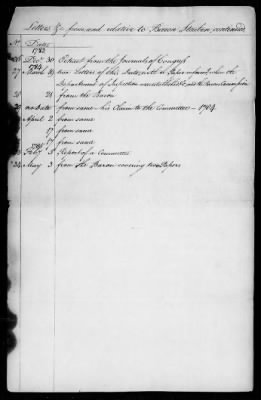 Letters &c from, and relative to Baron Steuben, continued
No. Dates
1782
Decr. 30 Extract from the Journals of Congress
1784
27 March two Letters of the Baron with a Paper when the
Department of Inspection was
28 21 from the Baron
no date from same - his Claim to the Committee - 1784
April 2 from same
17 from same
17 from same
1785
Feby. 3 Report of a Committee
34 May 3 from the Baron covering two Papers